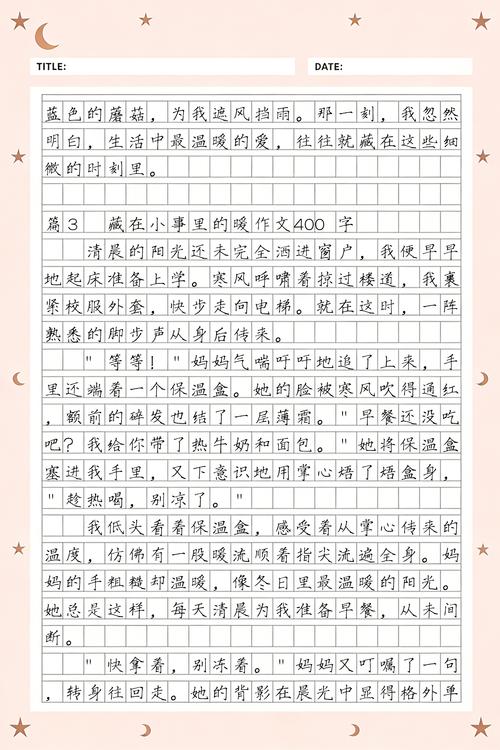 TITLE: DATE:
蓝色的蘑菇，为我遮风挡雨。那一刻，我忽然
明白，生活中最温暖的爱，往往就藏在这些细
微的时刻里。
篇3 藏在小事里的暖作文400 字
清晨的阳光还未完全洒进窗户，我便早早
地起床准备上学。寒风呼啸着掠过楼道，我裹
紧校服外套，快步走向电梯。就在这时，一阵
熟悉的脚步声从身后传来。
"等等！"妈妈气喘吁吁地追了上来，手
里还端着一个保温盒。她的脸被寒风吹得通红
，额前的碎发也结了一层薄霜。"早餐还没吃
吧？我给你带了热牛奶和面包。"她将保温盒
塞进我手里，又下意识地用掌心焐了焐盒身，
"趁热喝，别凉了。"
我低头看着保温盒，感受着从掌心传来的
温度，仿佛有一股暖流顺着指尖流遍全身。妈
妈的手粗糙却温暖，像冬日里最温暖的阳光。
她总是这样，每天清晨为我准备早餐，从未间
断。
"快拿着，别冻着。"妈妈又叮嘱了一句
，转身往回走。她的背影在晨光中显得格外单